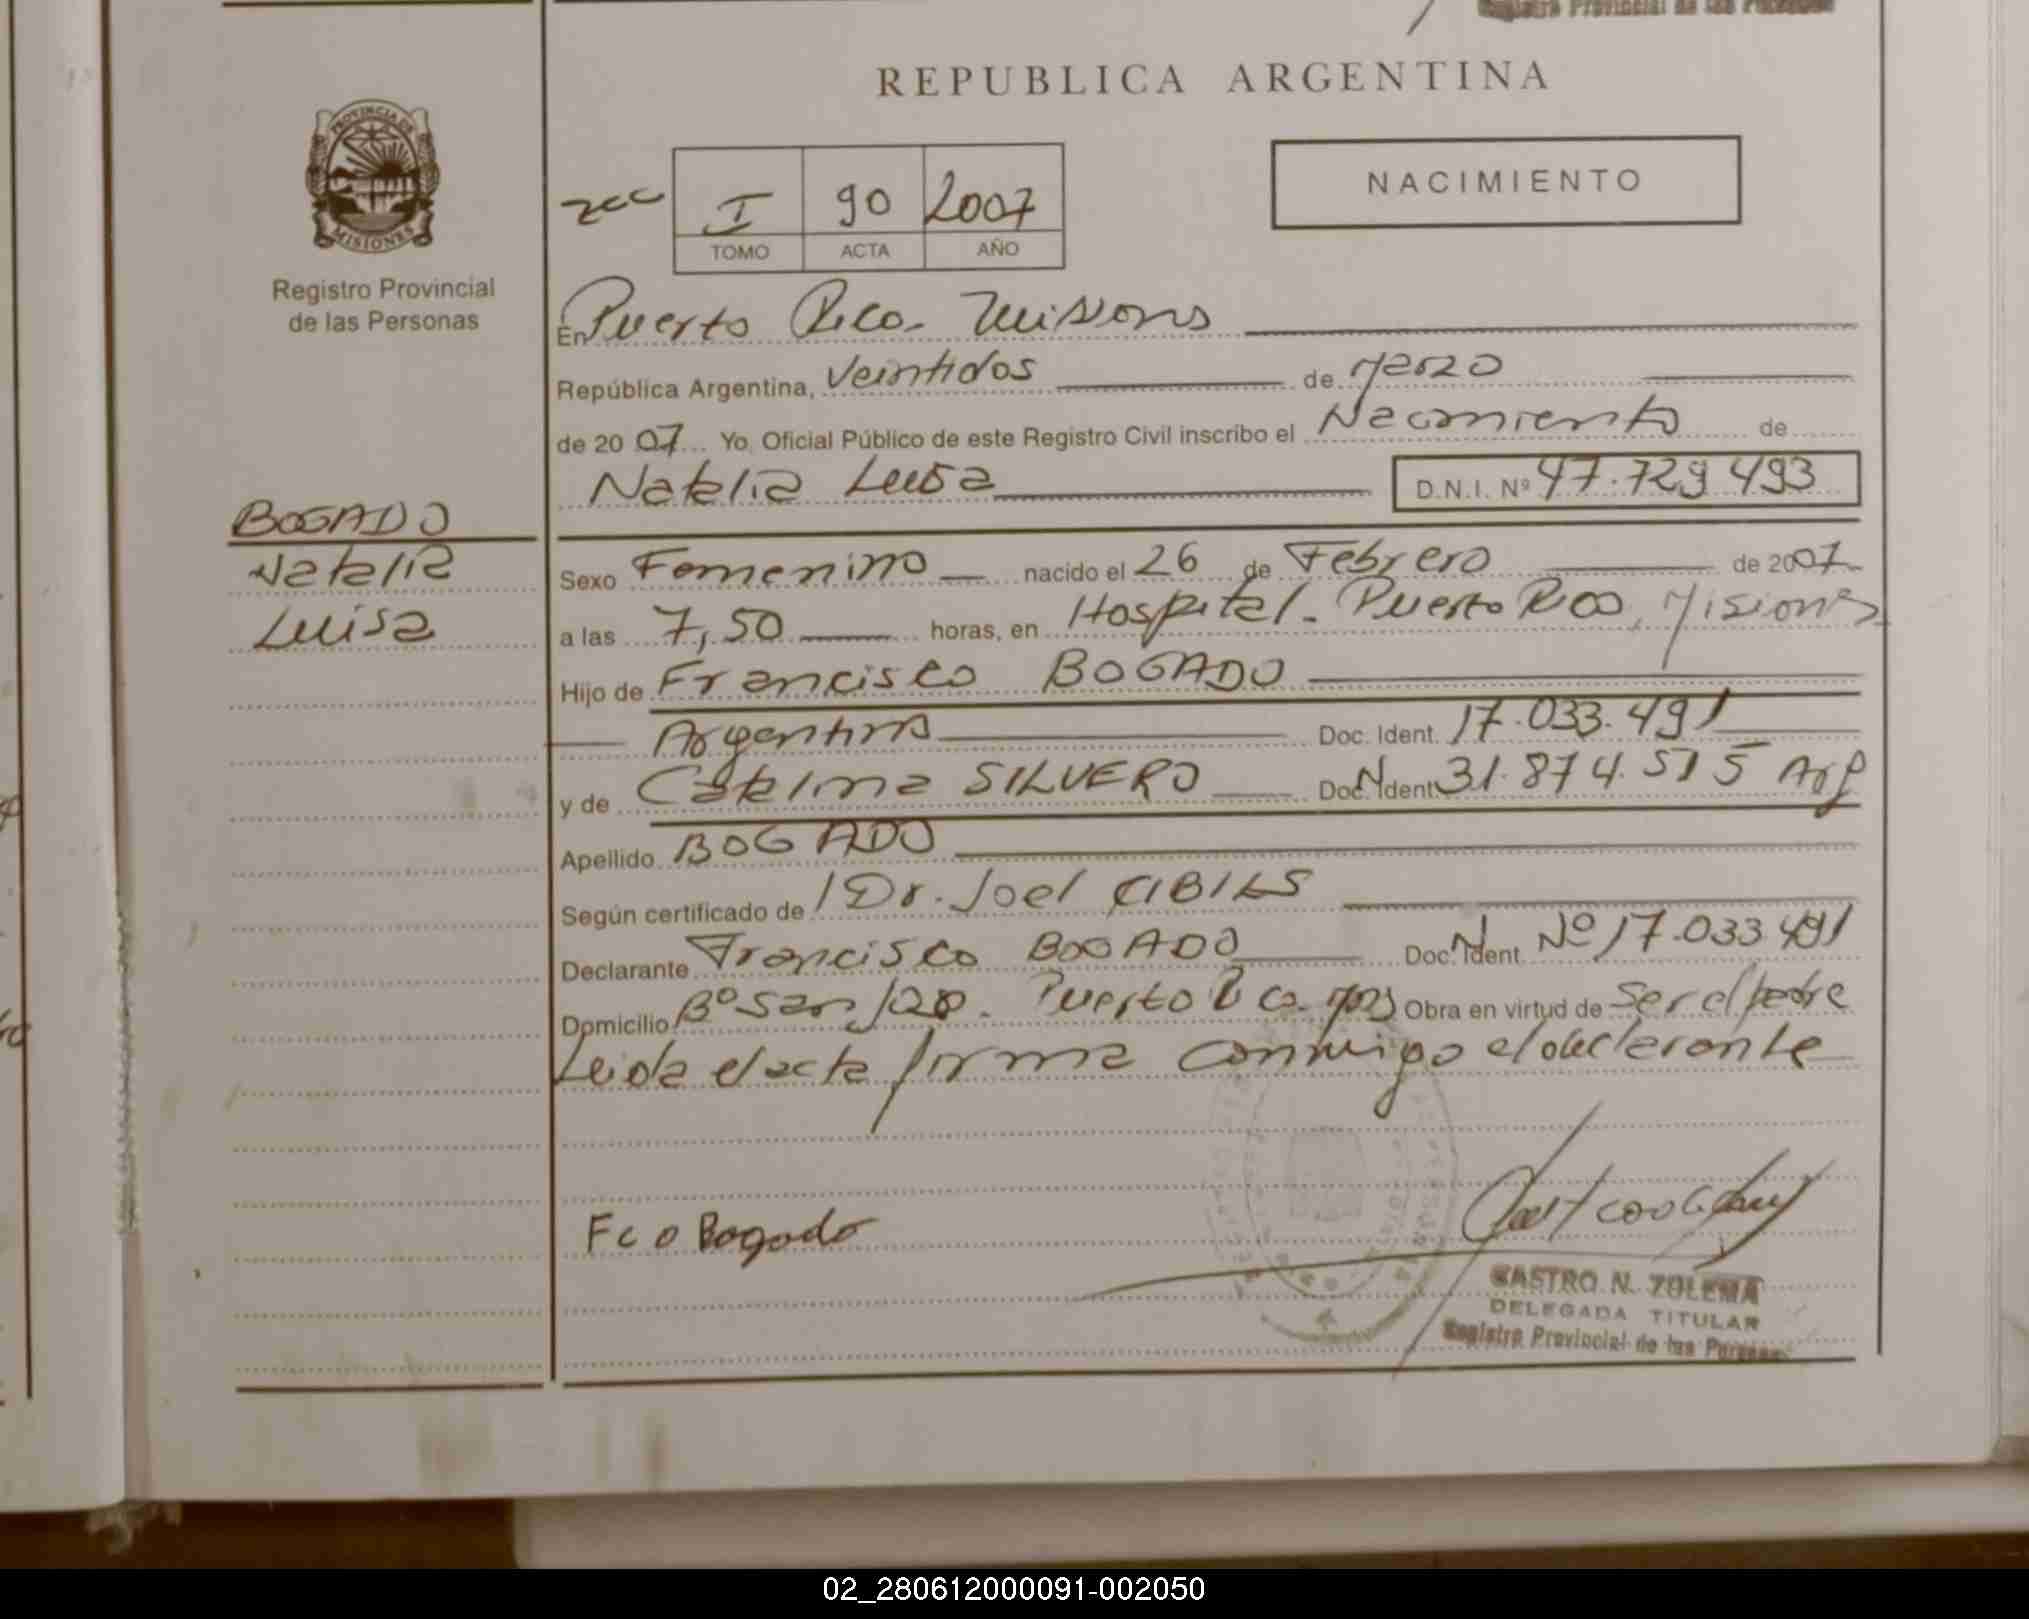 Registro Provincial de las Personas
REPUBLICA ARGENTINA
PROVINCIA DE
MISIONES
Registro Provincial
de las Personas
I 90 2007
TOMO ACTA AÑO
NACIMIENTO
En Puerto Rico. Misiones
República Argentina, Veintidos de Marzo
de 2007 Yo, Oficial Público de este Registro Civil inscribo el Nacimiento de
Natalia Luisa D.N.I. Nº 47.729.493
BOGADO
Natalia
Luisa
Sexo Femenino nacido el 26 de Febrero de 2007
a las 7,50 horas, en Hospital. Puerto Rico, Misiones
Hijo de Francisco BOGADO
Argentino Doc. Ident. 17.033.491
y de Catalina SILVERO Doc. N Ident 31.874.515 Arg
Apellido BOGADO
Según certificado de Dr. Joel CIBILS
Declarante Francisco BOGADO Doc. N Ident. Nº 17.033.491
Domicilio Bº San Puerto Rico. Mnes Obra en virtud de ser el padre
Leida el acta firma conmigo el declarante
Fco Bogado
CASTRO N. ZULEMA
DELEGADA TITULAR
Registro Provincial de las Personas
02_280612000091-002050